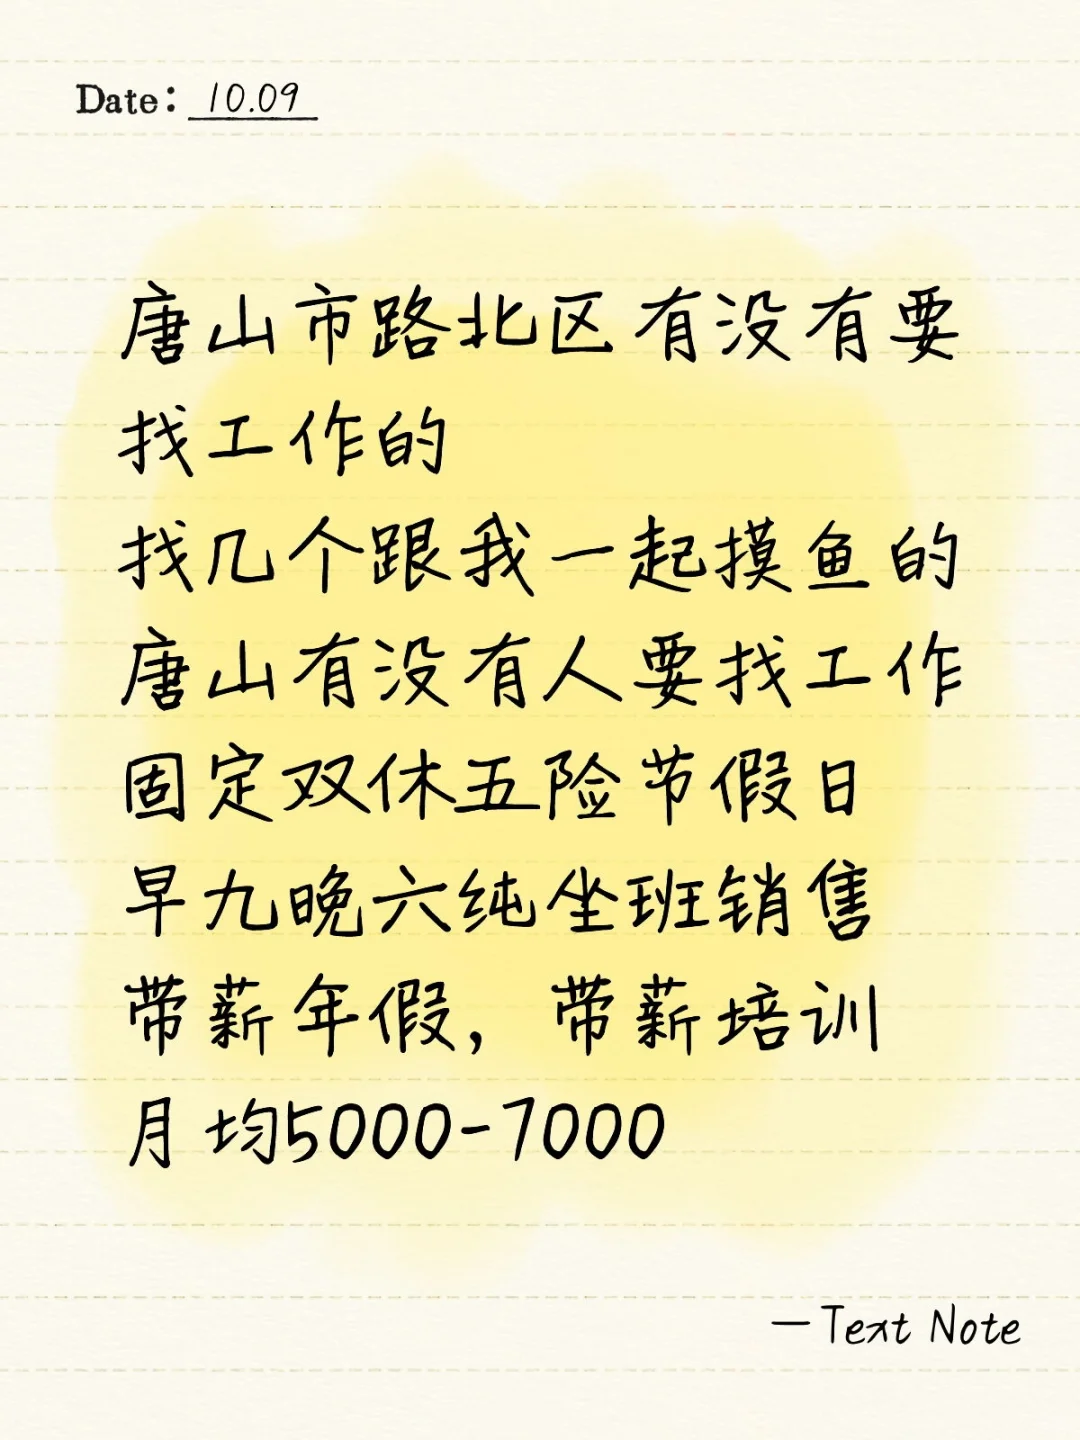 Date: 10.09
唐山市路北区有没有要
找工作的
找几个跟我一起摸鱼的
唐山有没有人要找工作
固定双休五险节假日
早九晚六纯坐班销售
带薪年假，带薪培训
月均5000-7000
—Text Note